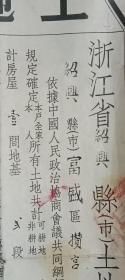 浙江省紹興縣市土地
紹興縣市富盛區攢宫
依據中國人民政治協商會議共同綱
規定確定本戶全家所有土地共計可耕地非耕地
計房屋壹間地基弍段